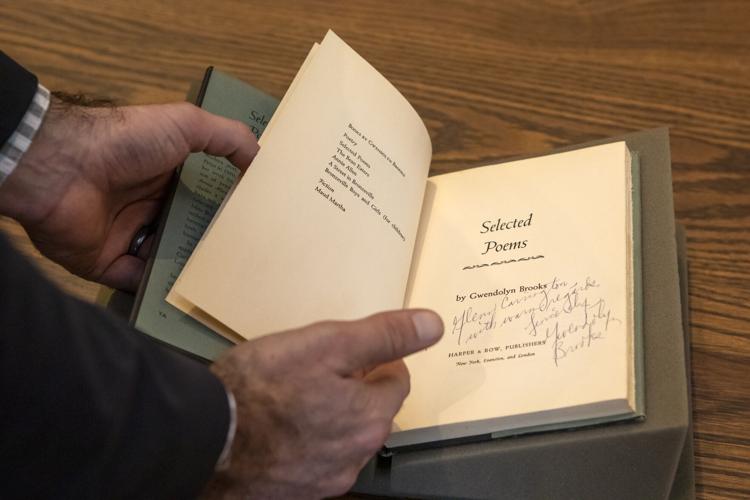 Sele
YA
Books by Gwendolyn Brooks
Poetry
Selected Poems
The Bean Eaters
Annie Allen
A Street in Bronzeville
Bronzeville Boys and Girls (for children)
Fiction
Maud Martha
Selected
Poems
by Gwendolyn Brooks
Glenn Carrington
with warm regards.
Sincerely,
Gwendolyn
Brooks
HARPER & ROW, PUBLISHERS
New York, Evanston, and London